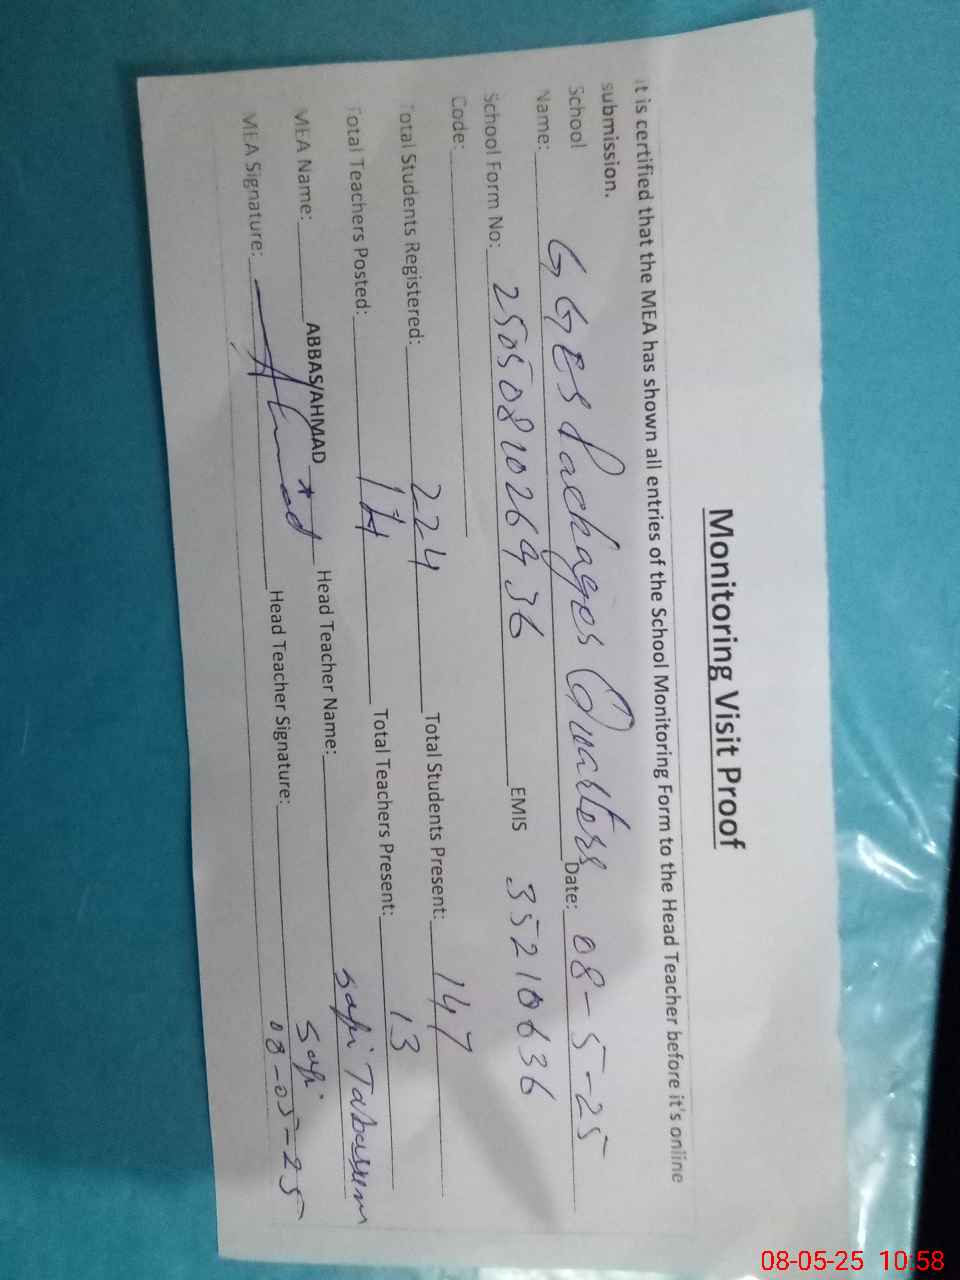 Monitoring Visit Proof
it is certified that the MEA has shown all entries of the School Monitoring Form to the Head Teacher before it's online
submission.
School
Name: GGES Packages Quarters Date: 08-5-25
School Form No: 2505081026936 EMIS 35210636
Code:
Total Students Registered: 224 Total Students Present: 147
Total Teachers Posted: 14 Total Teachers Present: 13
MEA Name: ABBAS/AHMAD * Head Teacher Name: Safi Tabassum
MEA Signature: Ahmad Head Teacher Signature: Safi
08-05-25
08-05-25 10:58